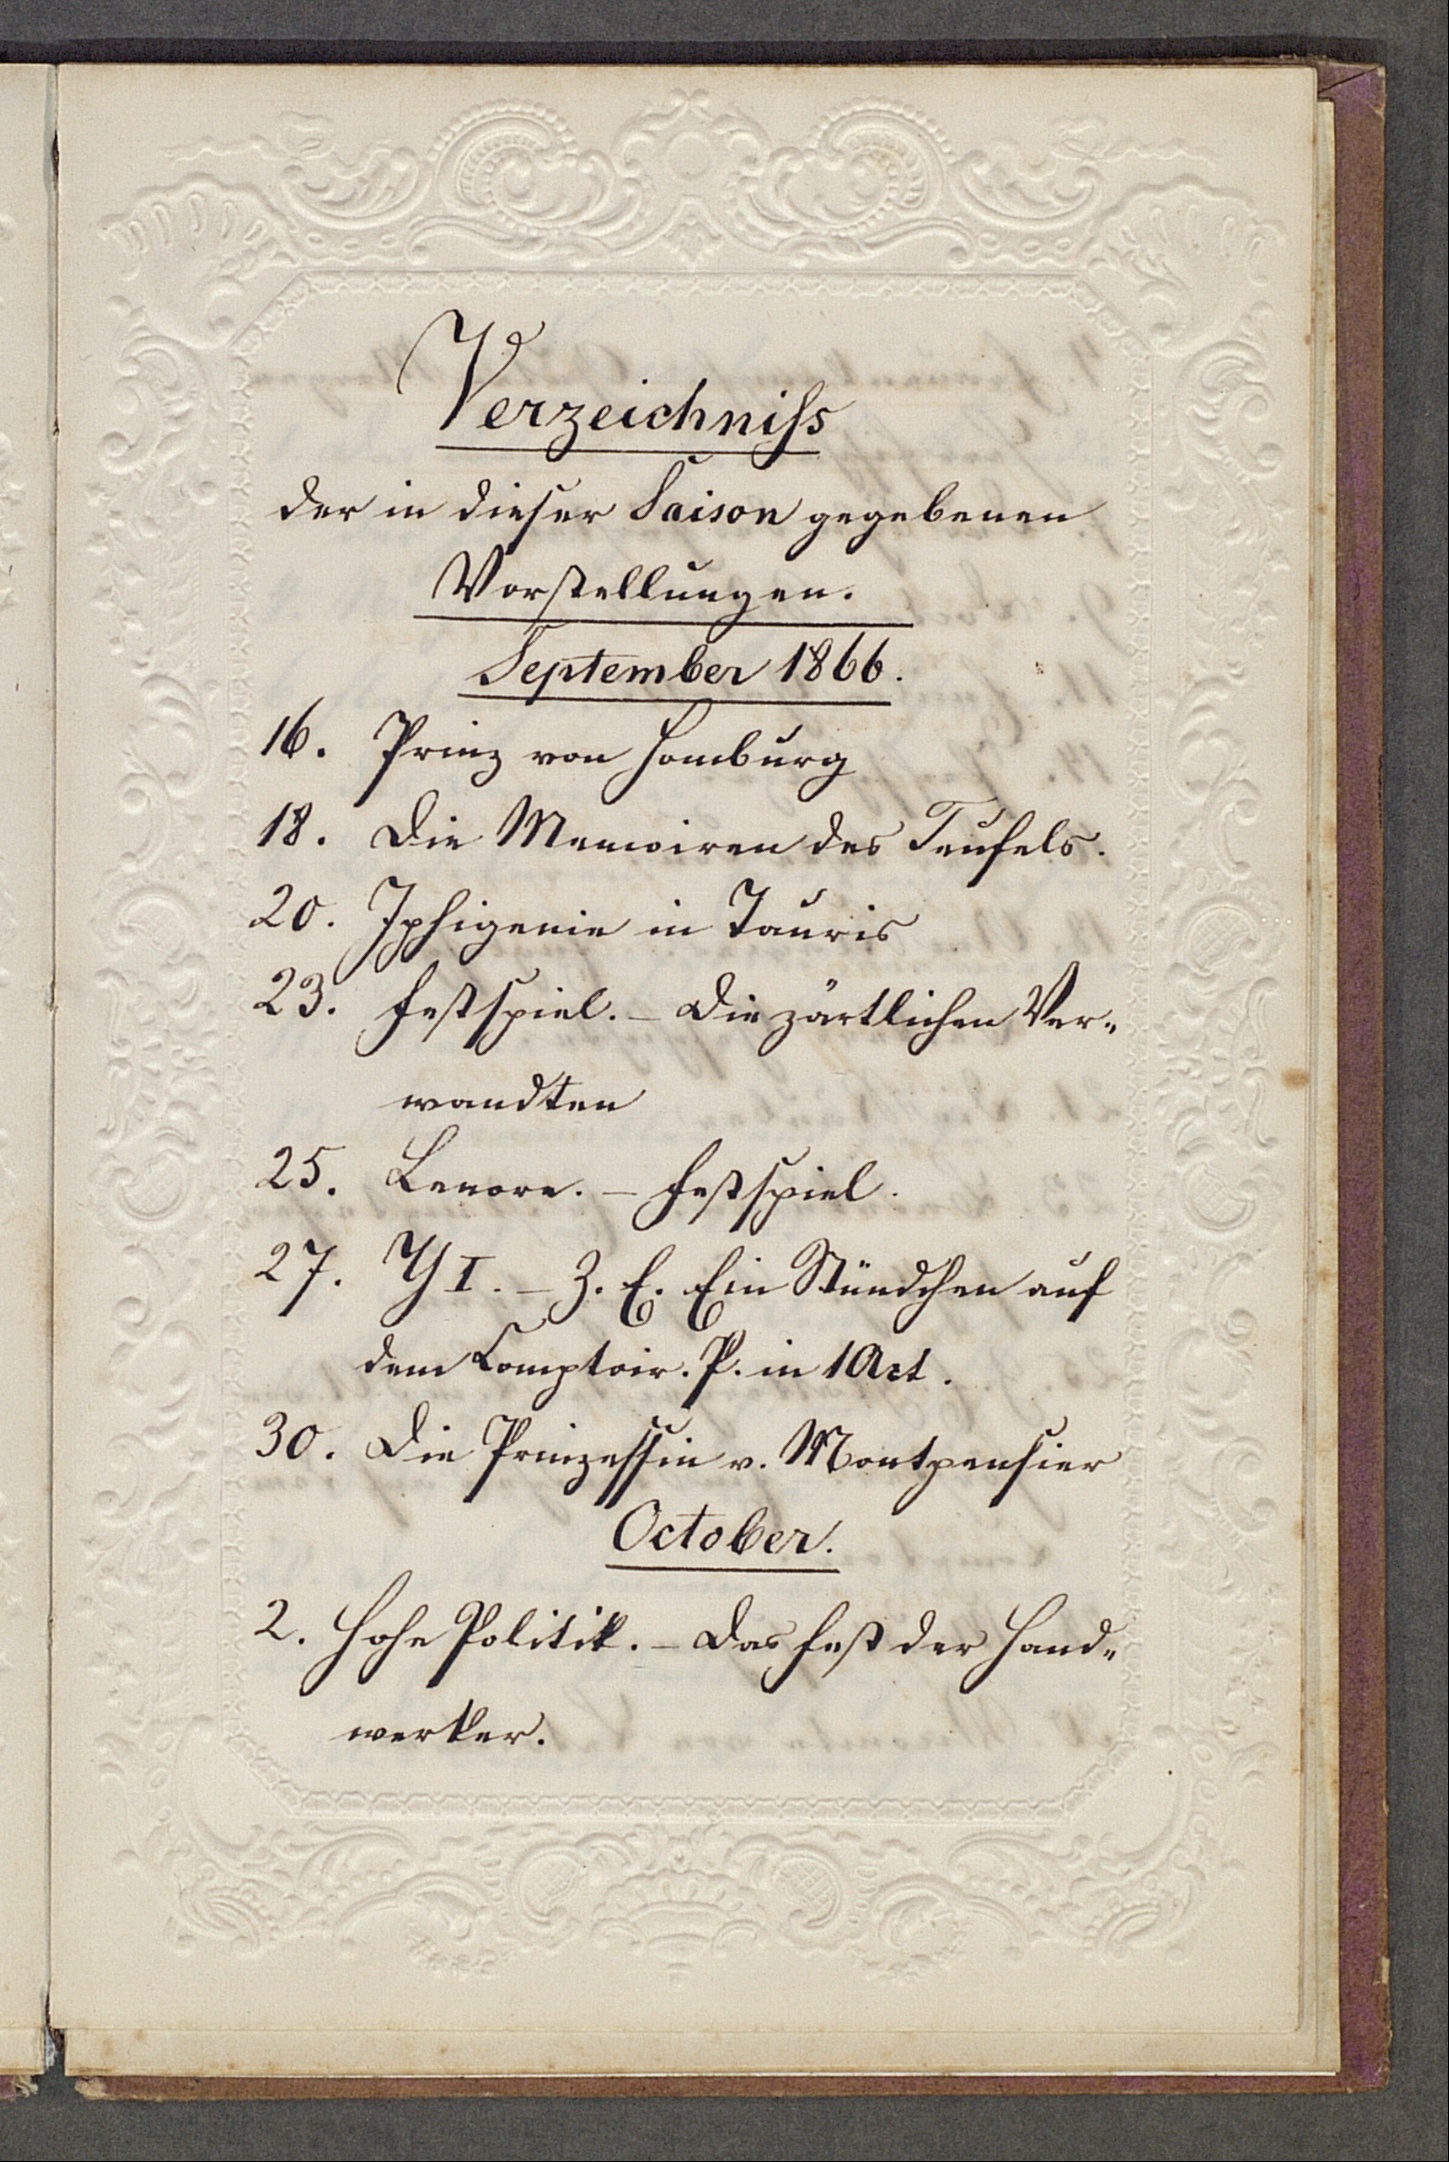 Verzeichniss
der in dieser Saison gegebenen
Vorstellungen.
September 1866.
16. Prinz von Homburg
18. Die Memoiren des Teufels.
20. Iphigenie in Tauris
23. Festspiel. – Die zärtlichen Ver-
wandten
25. Lenore. – Festspiel.
27. Y I. – Z. E. Ein Stündchen auf
dem Comptoir. P. in 1 Act.
30. Die Prinzessin v. Montpensier
October.
2. Hohe Politik. – Das Fest der Hand-
werker.